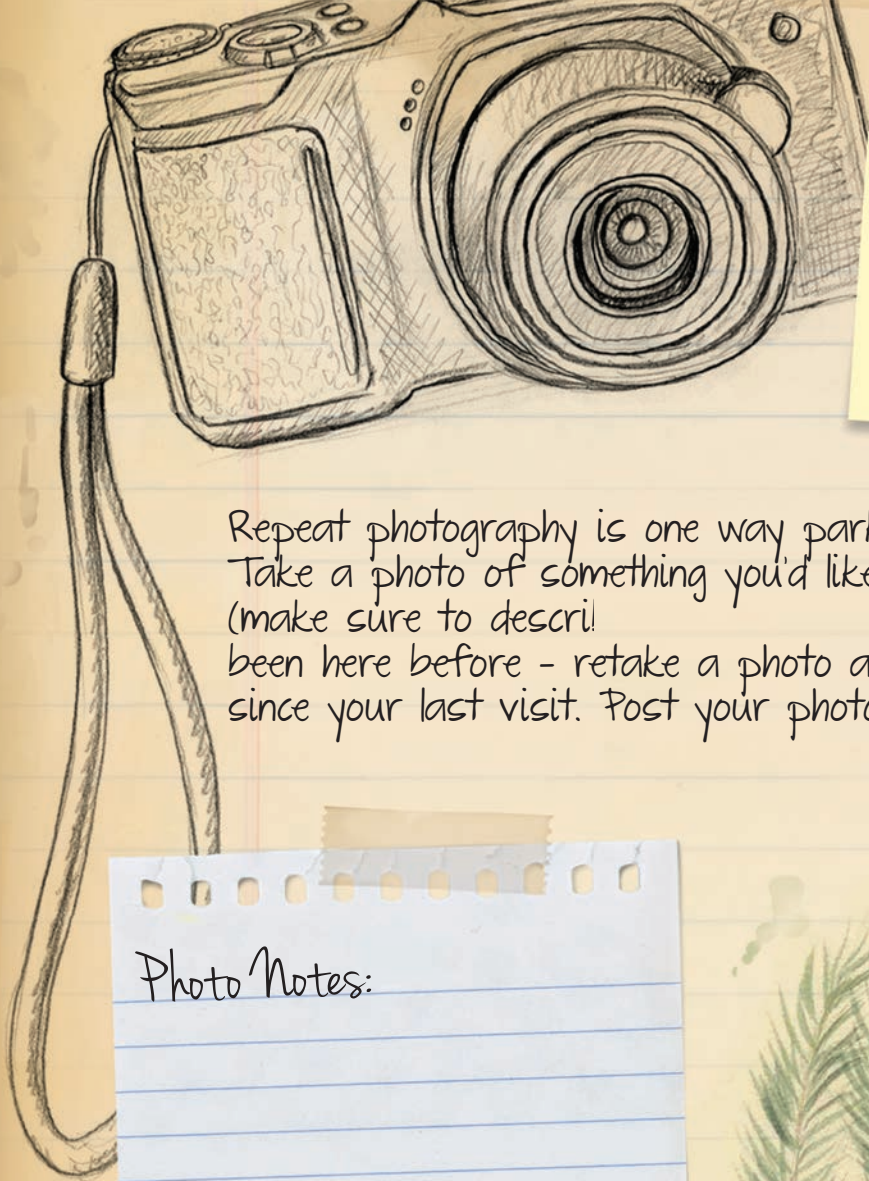 Repeat photography is one way
Take a photo of something you'd like
(make sure to
been here before - retake a photo
since your last visit. Post your
Photo Notes: